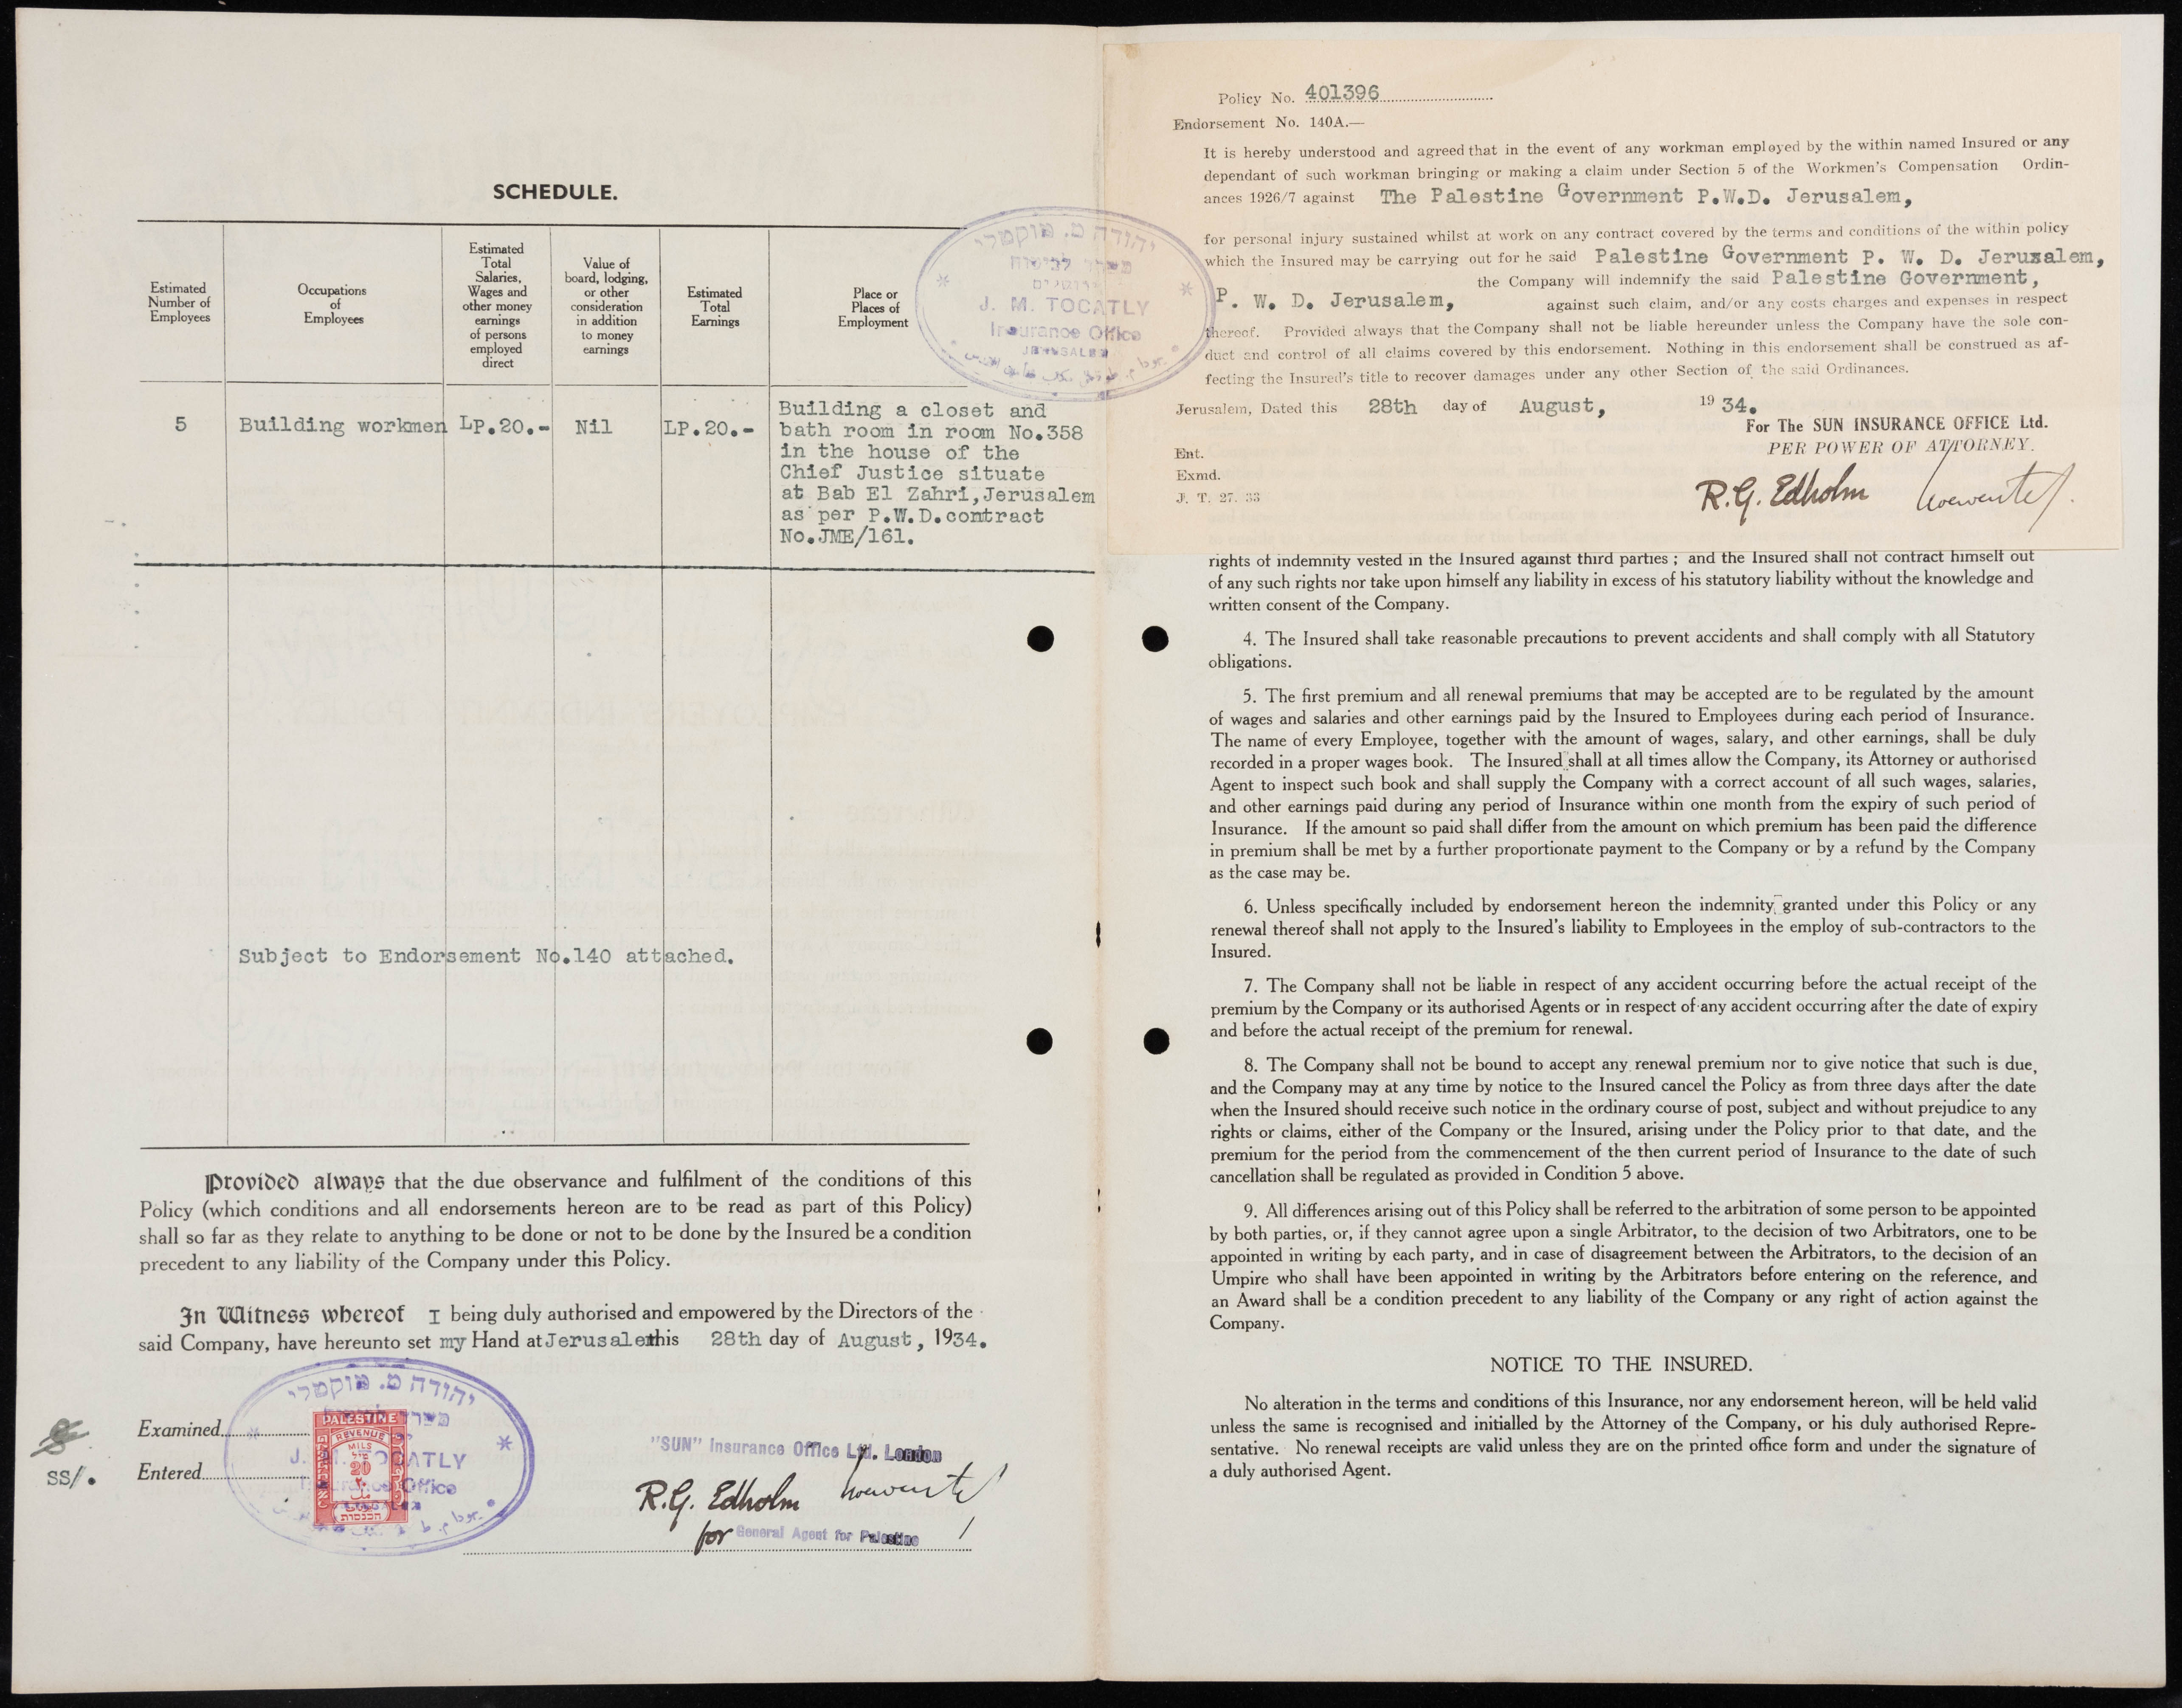 SCHEDULE.
Estimated
Number of
Employees
Occupations
of
Employees
Estimated
Total
Salaries,
Wages and
other money
earnings
of persons
employed
direct
Value of
board, lodging,
or other
consideration
in addition
to money
earnings
Estimated
Total
Earnings
Place or
Places of
Employment
5
Building workmen
LP.20.-
Nil
LP.20.-
Building a closet and
bath room in room No.358
in the house of the
Chief Justice situate
at Bab El Zahri,Jerusalem
as per P.W.D.contract
No.JME/161.
Subject to Endorsement No.140 attached.
Provided always that the due observance and fulfilment of the conditions of this
Policy (which conditions and all endorsements hereon are to be read as part of this Policy)
shall so far as they relate to anything to be done or not to be done by the Insured be a condition
precedent to any liability of the Company under this Policy.
In Witness whereof I being duly authorised and empowered by the Directors of the
said Company, have hereunto set my Hand at Jerusalem this 28th day of August, 1934.
Examined
Entered
SS/.
יהודה מ. טוקטלי
משרד
J. M. TOCATLY
Insurance Office
PALESTINE
REVENUE
MILS
מיל
20
٢٠
מל
הכנסות
"SUN" Insurance Office Ltd. London
R.G. Edholm
for General Agent for Palestine
יהודה מ. טוקטלי
משרד לביטוח
ירושלים
J. M. TOCATLY
Insurance Office
JERUSALEM
Policy No. 401396
Endorsement No. 140A.—
It is hereby understood and agreed that in the event of any workman employed by the within named Insured or any
dependant of such workman bringing or making a claim under Section 5 of the Workmen's Compensation Ordin-
ances 1926/7 against The Palestine Government P.W.D. Jerusalem,
for personal injury sustained whilst at work on any contract covered by the terms and conditions of the within policy
which the Insured may be carrying out for he said Palestine Government P. W. D. Jerusalem,
the Company will indemnify the said Palestine Government,
P. W. D. Jerusalem, against such claim, and/or any costs charges and expenses in respect
thereof. Provided always that the Company shall not be liable hereunder unless the Company have the sole con-
duct and control of all claims covered by this endorsement. Nothing in this endorsement shall be construed as af-
fecting the Insured's title to recover damages under any other Section of the said Ordinances.
Jerusalem, Dated this 28th day of August, 1934.
For The SUN INSURANCE OFFICE Ltd.
PER POWER OF ATTORNEY.
Ent.
Exmd.
J. T. 27. 33
R.G. Edholm
rights of indemnity vested in the Insured against third parties ; and the Insured shall not contract himself out
of any such rights nor take upon himself any liability in excess of his statutory liability without the knowledge and
written consent of the Company.
4. The Insured shall take reasonable precautions to prevent accidents and shall comply with all Statutory
obligations.
5. The first premium and all renewal premiums that may be accepted are to be regulated by the amount
of wages and salaries and other earnings paid by the Insured to Employees during each period of Insurance.
The name of every Employee, together with the amount of wages, salary, and other earnings, shall be duly
recorded in a proper wages book. The Insured shall at all times allow the Company, its Attorney or authorised
Agent to inspect such book and shall supply the Company with a correct account of all such wages, salaries,
and other earnings paid during any period of Insurance within one month from the expiry of such period of
Insurance. If the amount so paid shall differ from the amount on which premium has been paid the difference
in premium shall be met by a further proportionate payment to the Company or by a refund by the Company
as the case may be.
6. Unless specifically included by endorsement hereon the indemnity granted under this Policy or any
renewal thereof shall not apply to the Insured's liability to Employees in the employ of sub-contractors to the
Insured.
7. The Company shall not be liable in respect of any accident occurring before the actual receipt of the
premium by the Company or its authorised Agents or in respect of any accident occurring after the date of expiry
and before the actual receipt of the premium for renewal.
8. The Company shall not be bound to accept any renewal premium nor to give notice that such is due,
and the Company may at any time by notice to the Insured cancel the Policy as from three days after the date
when the Insured should receive such notice in the ordinary course of post, subject and without prejudice to any
rights or claims, either of the Company or the Insured, arising under the Policy prior to that date, and the
premium for the period from the commencement of the then current period of Insurance to the date of such
cancellation shall be regulated as provided in Condition 5 above.
9. All differences arising out of this Policy shall be referred to the arbitration of some person to be appointed
by both parties, or, if they cannot agree upon a single Arbitrator, to the decision of two Arbitrators, one to be
appointed in writing by each party, and in case of disagreement between the Arbitrators, to the decision of an
Umpire who shall have been appointed in writing by the Arbitrators before entering on the reference, and
an Award shall be a condition precedent to any liability of the Company or any right of action against the
Company.
NOTICE TO THE INSURED.
No alteration in the terms and conditions of this Insurance, nor any endorsement hereon, will be held valid
unless the same is recognised and initialled by the Attorney of the Company, or his duly authorised Repre-
sentative. No renewal receipts are valid unless they are on the printed office form and under the signature of
a duly authorised Agent.